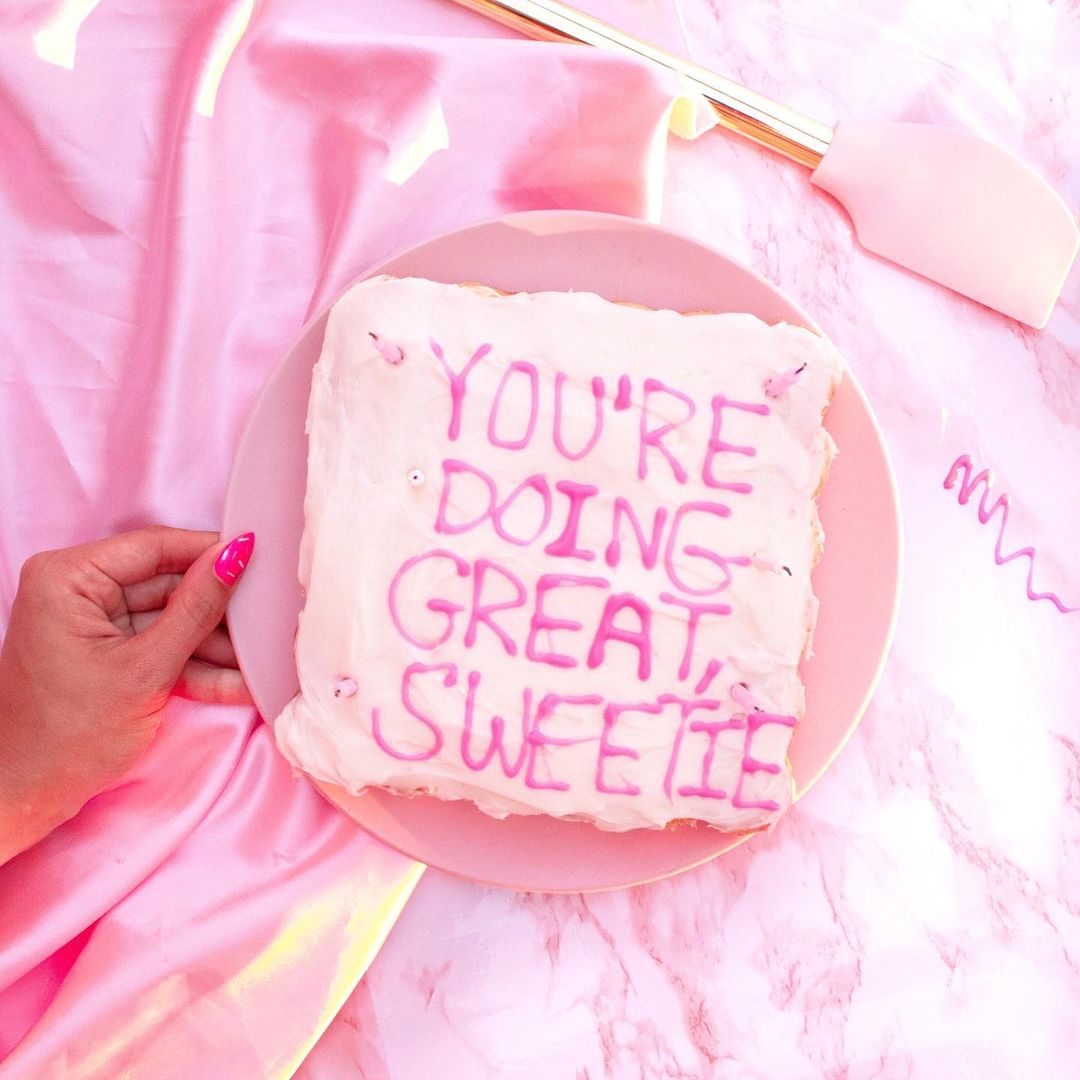 YOU'RE
DOING
GREAT,
SWEETIE